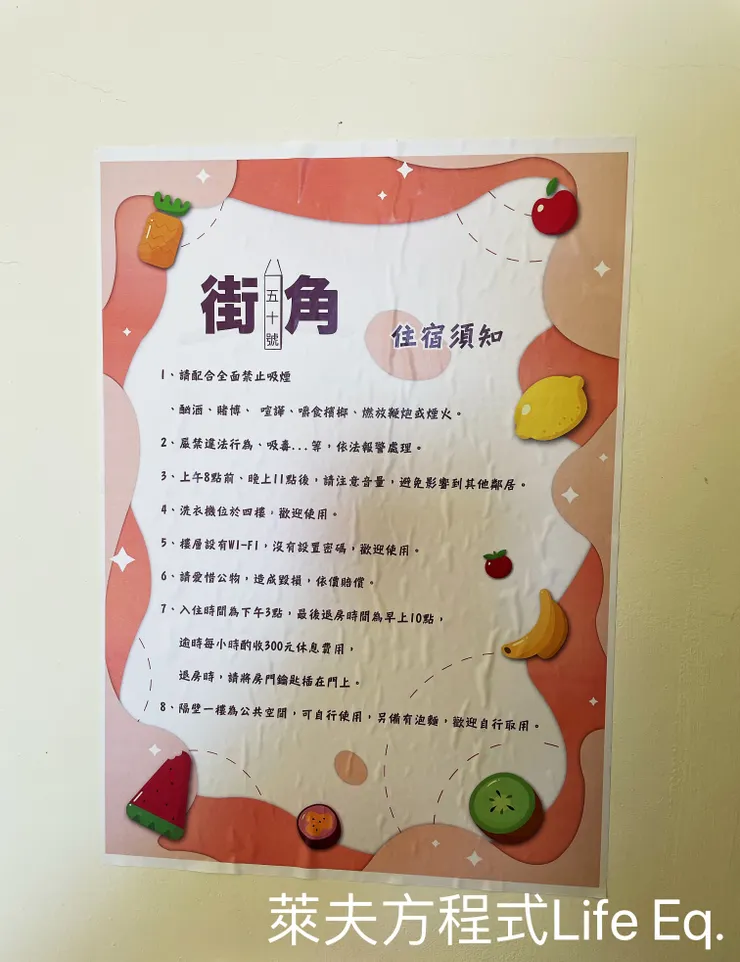 街五十號角
住宿須知
1、請配合全面禁止吸煙
、酗酒、賭博、喧譁、嚼食檳榔、燃放鞭炮或煙火。
2、嚴禁違法行為、吸毒...等,依法報警處理。
3、上午8點前、晚上11點後,請注意音量,避免影響到其他鄰居。
4、洗衣機位於四樓,歡迎使用。
5、樓層設有WI-FI,沒有設置密碼,歡迎使用。
6、請愛惜公物,造成毀損,依價賠償。
7、入住時間為下午3點,最後退房時間為早上10點,
逾時每小時酌收300元休息費用,
退房時,請將房門鑰匙插在門上。
8、隔壁一樓為公共空間,可自行使用,另備有泡麵,歡迎自行取用。
萊夫方程式Life Eq.